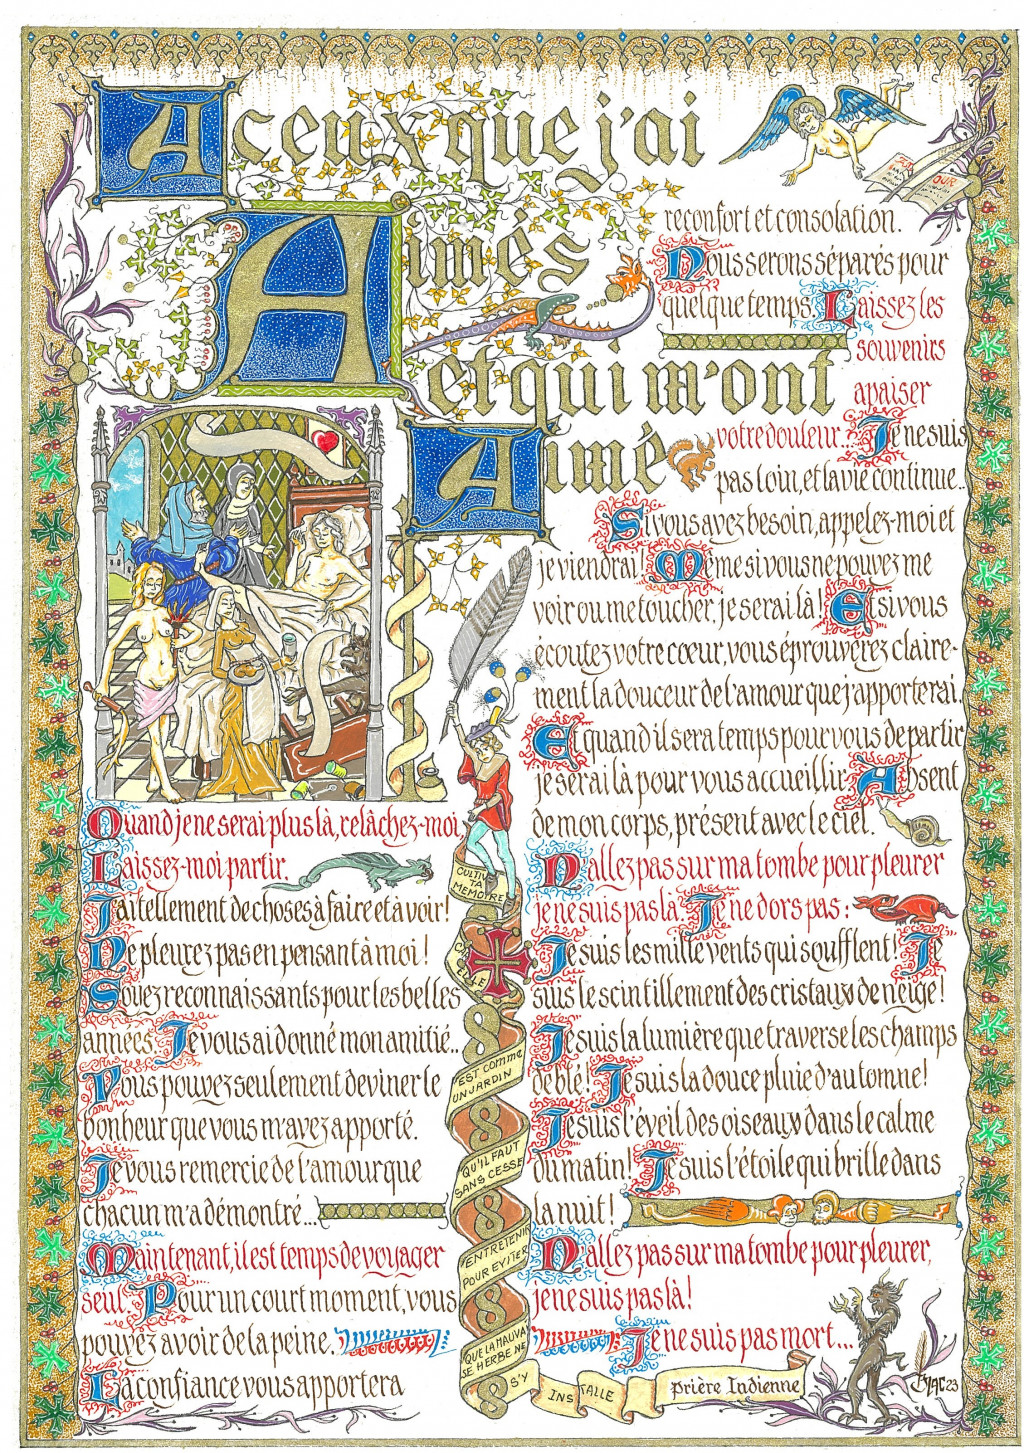 A ceux que j'ai
Aimés
Et qui m'ont
Aimé
Quand je ne serai plus là, relâchez-moi,
Laissez-moi partir.
J'ai tellement de choses à faire et à voir!
Ne pleurez pas en pensant à moi!
Soyez reconnaissants pour les belles
années. Je vous ai donné mon amitié..
Vous pouvez seulement deviner le
bonheur que vous m'avez apporté.
Je vous remercie de l'amour que
chacun m'a démontré...
Maintenant, il est temps de voyager
seul. Pour un court moment, vous
pouvez avoir de la peine.
La confiance vous apportera
reconfort et consolation.
Nous serons séparés pour
quelque temps. Laissez les
souvenirs
apaiser
votre douleur... Je ne suis
pas loin, et la vie continue..
Si vous avez besoin, appelez-moi et
je viendrai! Même si vous ne pouvez me
voir ou me toucher, je serai là! Et si vous
écoutez votre cœur, vous éprouverez claire-
ment la douceur de l'amour que j'apporterai.
Et quand il sera temps pour vous de partir
je serai là pour vous accueillir. Absent
de mon corps, présent avec le ciel.
N'allez pas sur ma tombe pour pleurer
je ne suis pas là. Je ne dors pas:
Je suis les mille vents qui soufflent! Je
suis le scintillement des cristaux de neige!
Je suis la lumière que traverse les champs
de blé! Je suis la douce pluie d'automne!
Je suis l'éveil des oiseaux dans le calme
du matin! Je suis l'étoile qui brille dans
la nuit!
N'allez pas sur ma tombe pour pleurer,
je ne suis pas là!
Je ne suis pas mort...
CULTIVE
TA
MEMOIRE
CAR ELLE
EST COMME
UN JARDIN
QU'IL FAUT
SANS CESSE
ENTRETENIR
POUR EVITER
QUE LA MAUVAI
SE HERBE NE
S'Y
INSTALLE
prière Indienne